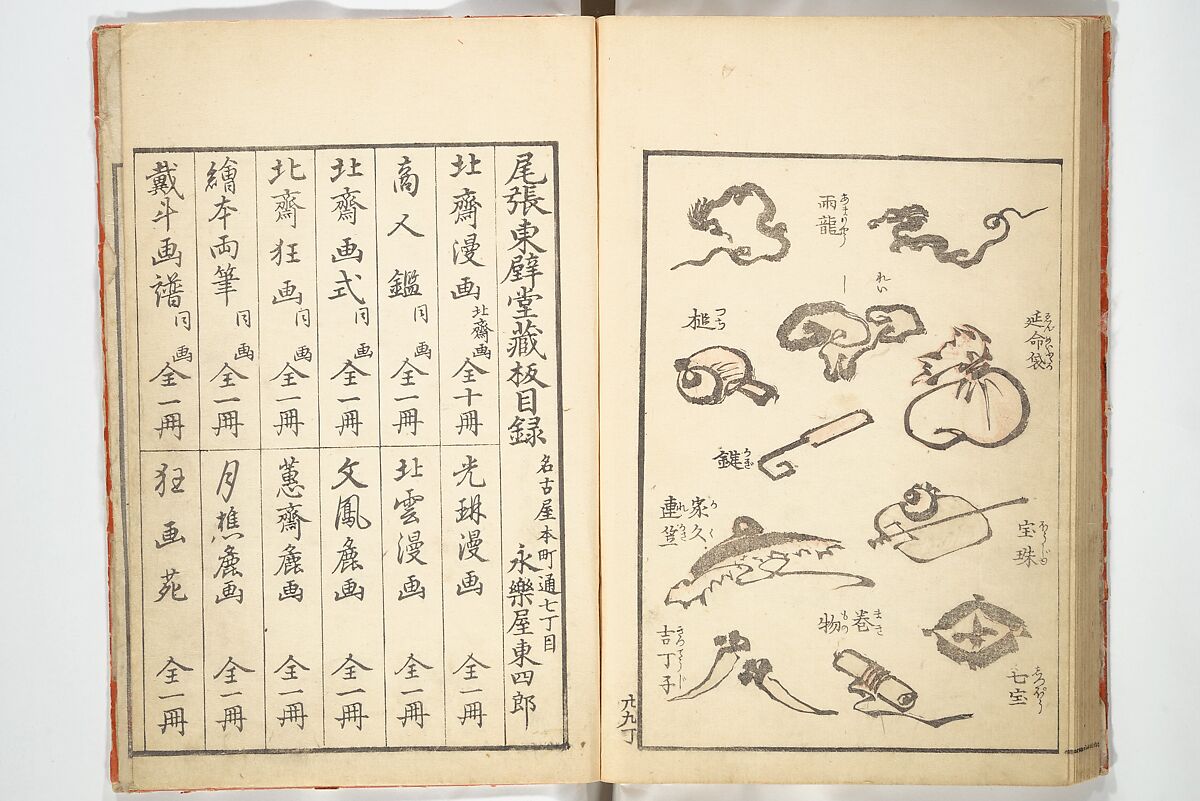 雨龍
あまりやう
れい
延命袋
ゑんめいぶくろ
槌
つち
鍵
かぎ
宝珠
ほうじゆ
家久
連蓑
かく
れみの
巻物
まき
もの
七宝
しつぽう
吉丁子
きつてうじ
廿九丁
尾張東壁堂藏板目録
名古屋本町通七丁目
永樂屋東四郎
北齋漫画 北齋画 全十冊
光琳漫画 全一冊
商人鑑 同画 全一冊
北雲漫画 全一冊
北齋画式 同画 全一冊
文鳳麁画 全一冊
北齋狂画 同画 全一冊
蕙齋麁画 全一冊
繪本両筆 同画 全一冊
月樵麁画 全一冊
戴斗画譜 同画 全一冊
狂画苑 全一冊